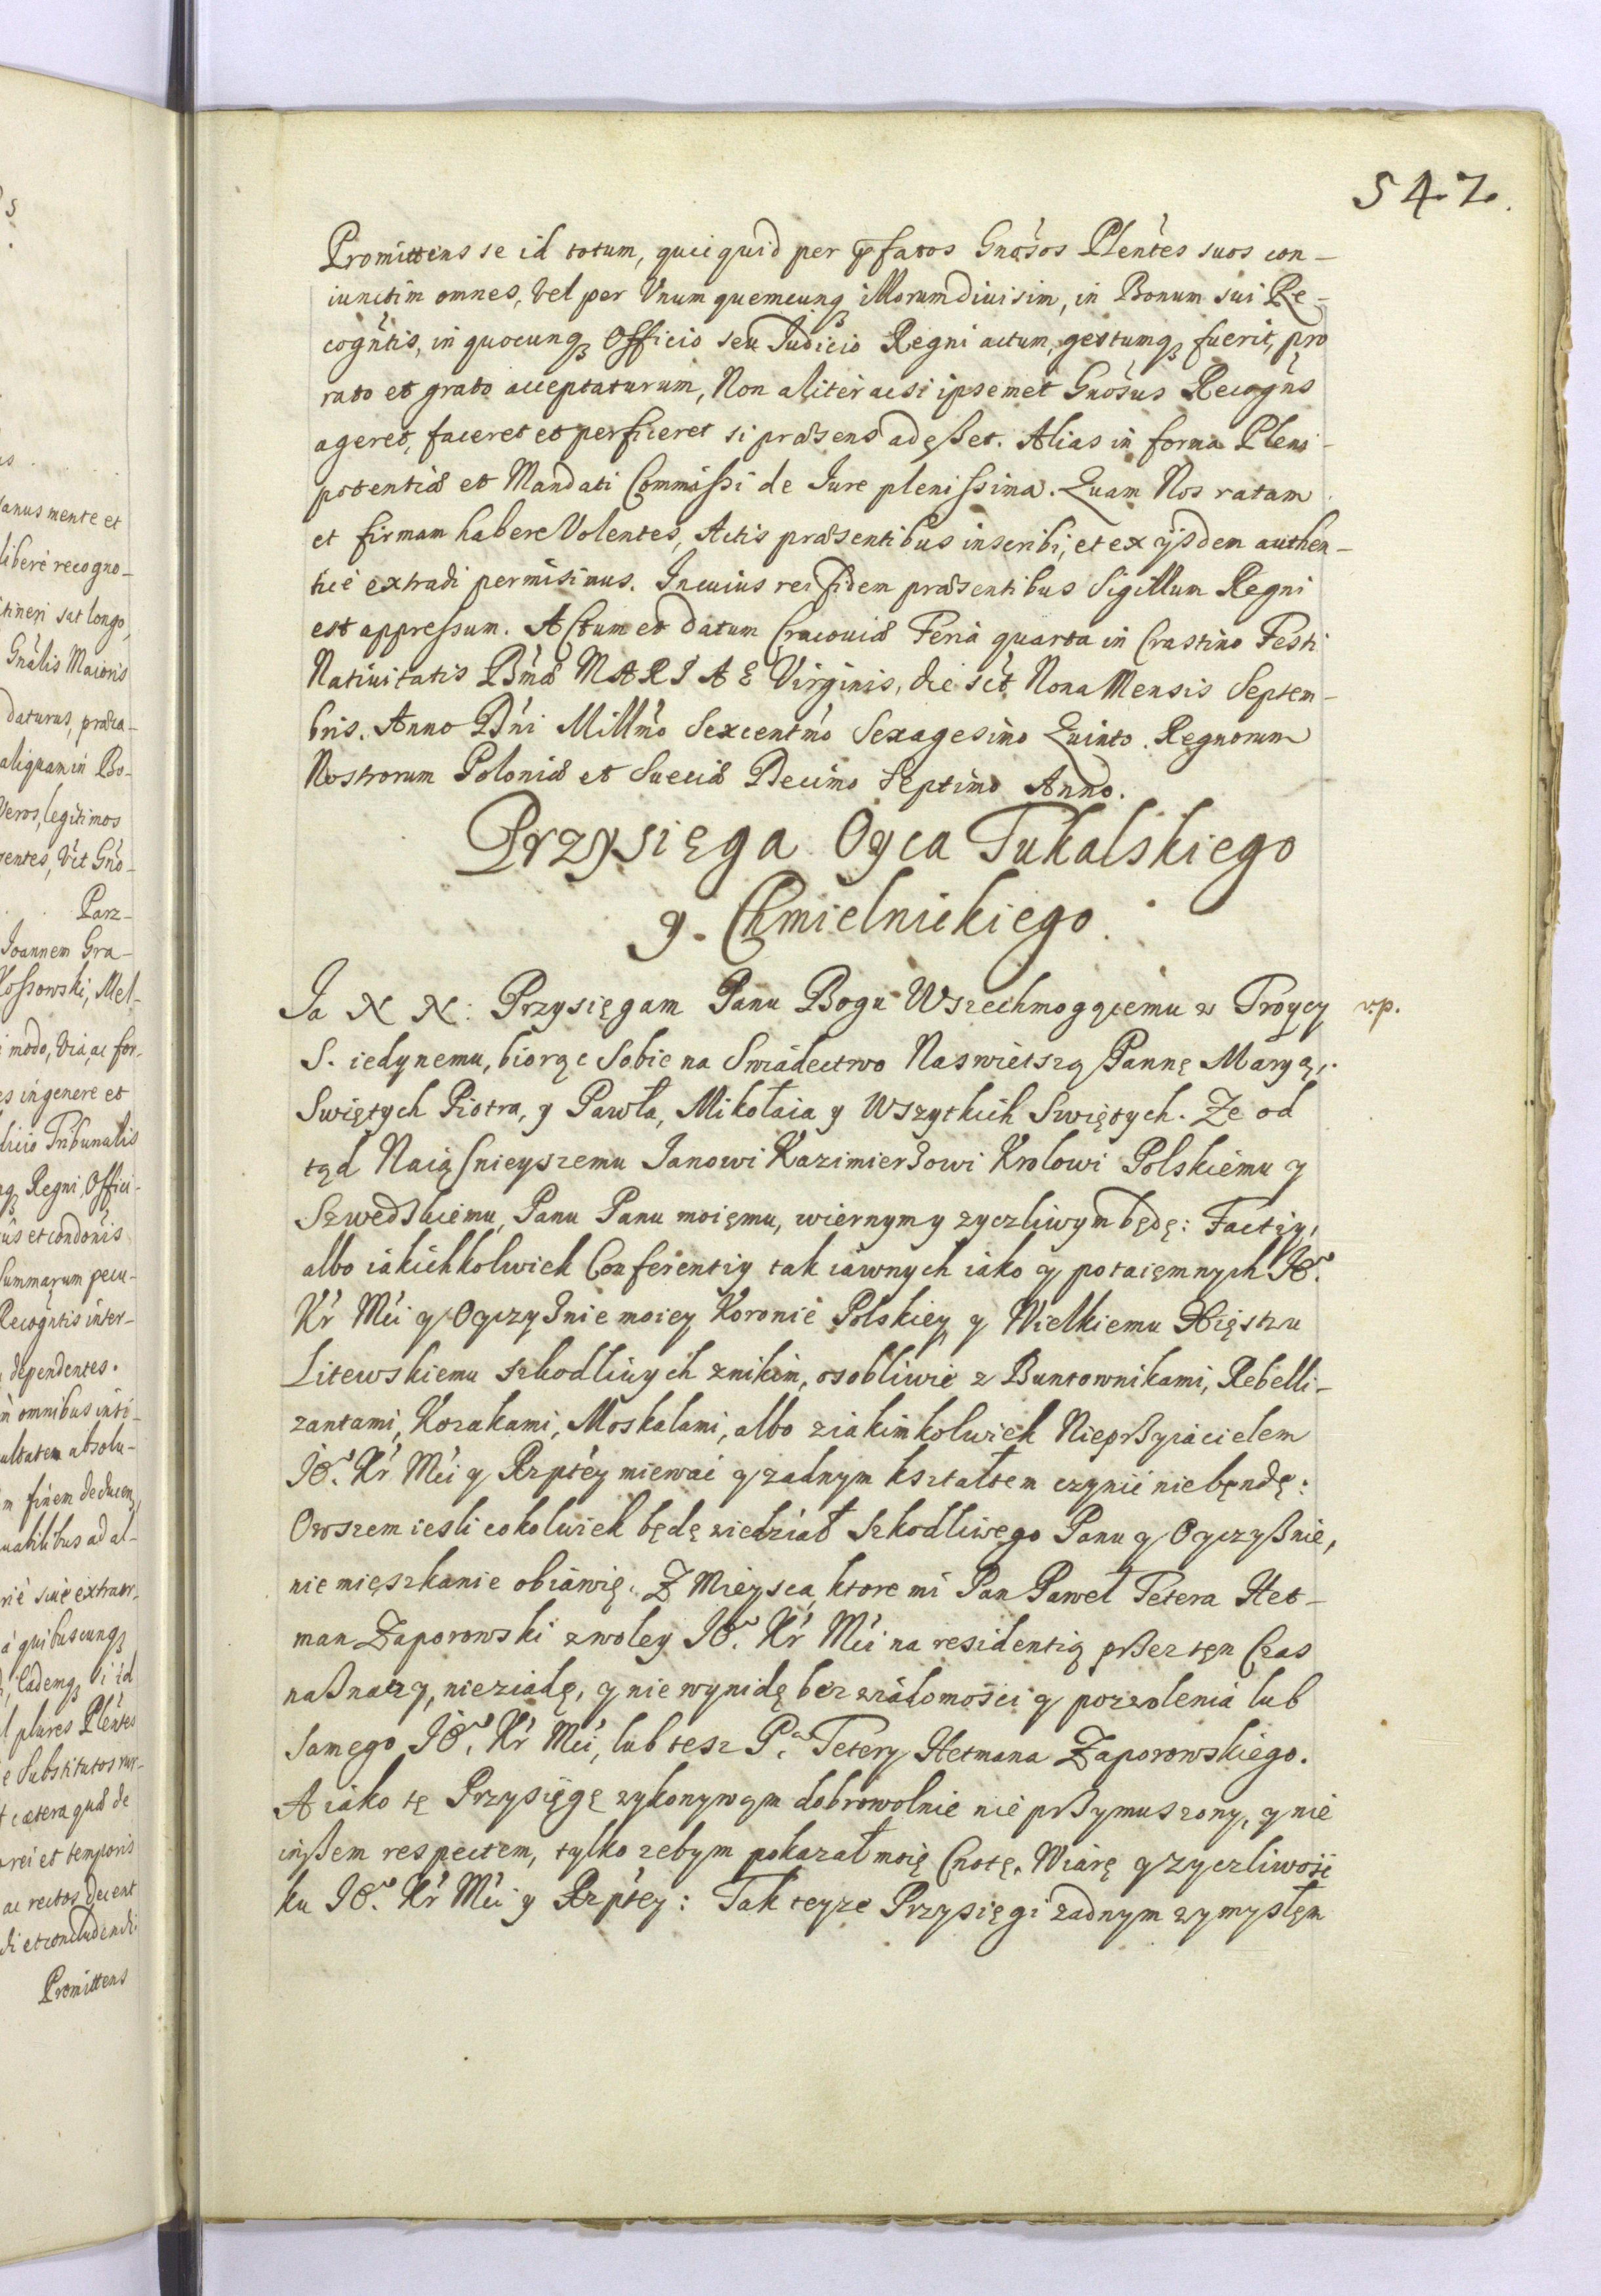 547.
Promittens se id totum, quicquid per p̃fatos Gnõsos Plentẽs suos con-
iunctim omnes, Vel per Vnum quemcunq3 illorum diuisim, in Bonum sui Re-
cogñtis, in quocunq3 Officio seu Judicio Regni actum, gestumq3 fuerit, pro
rato et grato acceptaturum, Non aliter acsi ipsemet Gnõsus Recogñs
ageret, faceret et perficeret si præsens adeßet. Alias in forma Pleni-
potentiæ et Mandati Commißi de Iure plenißima. Quam Nos ratam
et firmam habere Volentes, Actis præsentibus inscribi, et ex ijsdem authen-
ticè extradi permisimus. In cuius rei fidem præsentibus Sigillum Regni
est appreßum. Actum et datum Cracouiæ Feria quarta in Crastino Festi
Natiuitatis Bm̃æ MARIAE Virginis, die sct̃ Nona Mensis Septem-
bris. Anno Dñi Millm̃o Sexcentm̃o Sexagesimo Quinto. Regnorum
Nostrorum Poloniæ et Sueciæ Decimo Septimo Anno.
Przysięga Oyca Tukalskiego
y. Chmielnickiego.
Ja N N: Przysięgam Panu Bogu Wszechmogącemu w Troycy
v.p.
S. iedynemu, biorąc Sobie na Swiadectwo Naswietszą Pannę Maryą,
Swiętych Piotra, y Pawła, Mikołaia y Wszytkich Swiętych. Ze od
tąd Naiąsnieyszemu Janowi Kazimierzowi Krolowi Polskiemu y
Szwedskiemu, Panu Panu moiemu, wiernym y zyczliwym będę: Factiy,
albo iakichkolwiek Conferentiy tak iawnych iako y potaiemnych Jõ.
Kr̃ Mci y Oyczyznie moiey Koronie Polskiey y Wielkiemu Xięstwu
Litewskiemu szkodliwych znikim, osobliwie z Buntownikami, Rebelli-
zantami, Kozakami, Moskalami, albo ziakimkolwiek Nieprßyiacielem
Jõ. Kr̃ Mci y Rzptey miewać y zadnym kształtem czynić nie będę:
Owszem iesli cokolwiek będę wiedział szkodliwego Panu y Oyczyßnie,
nie mięszkanie obiawię. Z Mieysca, ktore mi Pan Paweł Tetera Het-
man Zaporowski zwoley Jõ. Kr̃ Mci na residentią przez ten Czas
naßnaczy, nieziadę, y nie wynidę bez wiadomości y pozwolenia lub
samego Jõ. Kr̃ Mci, lub tesz P.ª Tetery Hetmana Zaporowskiego.
A iako tę Przysięgę wykonywam dobrowolnie nie prßymuszony, y nie
inßem respectem, tylko zebym pokazał moię Cnotę, Wiarę y zyczliwość
ku Jõ. Kr̃ Mci y Rzptey: Tak teyze Przysięgi zadnym wymysłem
anus mente et
liberè recogno-
itineri sat longo,
Gnalis Maioris
daturus, præca-
aliquam in Bo-
Veros, legitimos
Parz-
Joannem Gra-
Koßowski, Mel-
modo, Via, ac for-
es in genere et
Tribunalis
Regni, Offici-
Summarum pecu-
Recogñtis inter-
dependentes.
omnibus inti-
absolu-
finem
ad al-
extraor-
à quibuscunq3
plures Plentẽs
Substitutos
cætera quæ de
rei et temporis
ac rectos decent
di et concludendi:
Promittens